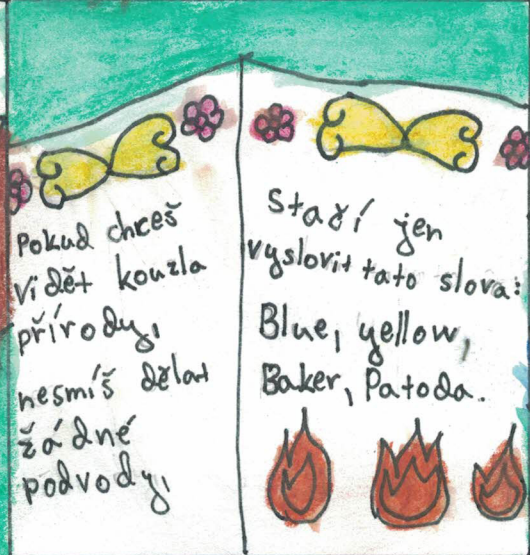 Pokud chceš
vidět kouzla
přírody,
nesmíš dělat
žádné
podvody,
Stačí jen
vyslovit tato slova:
Blue, yellow,
Baker, Patoda.